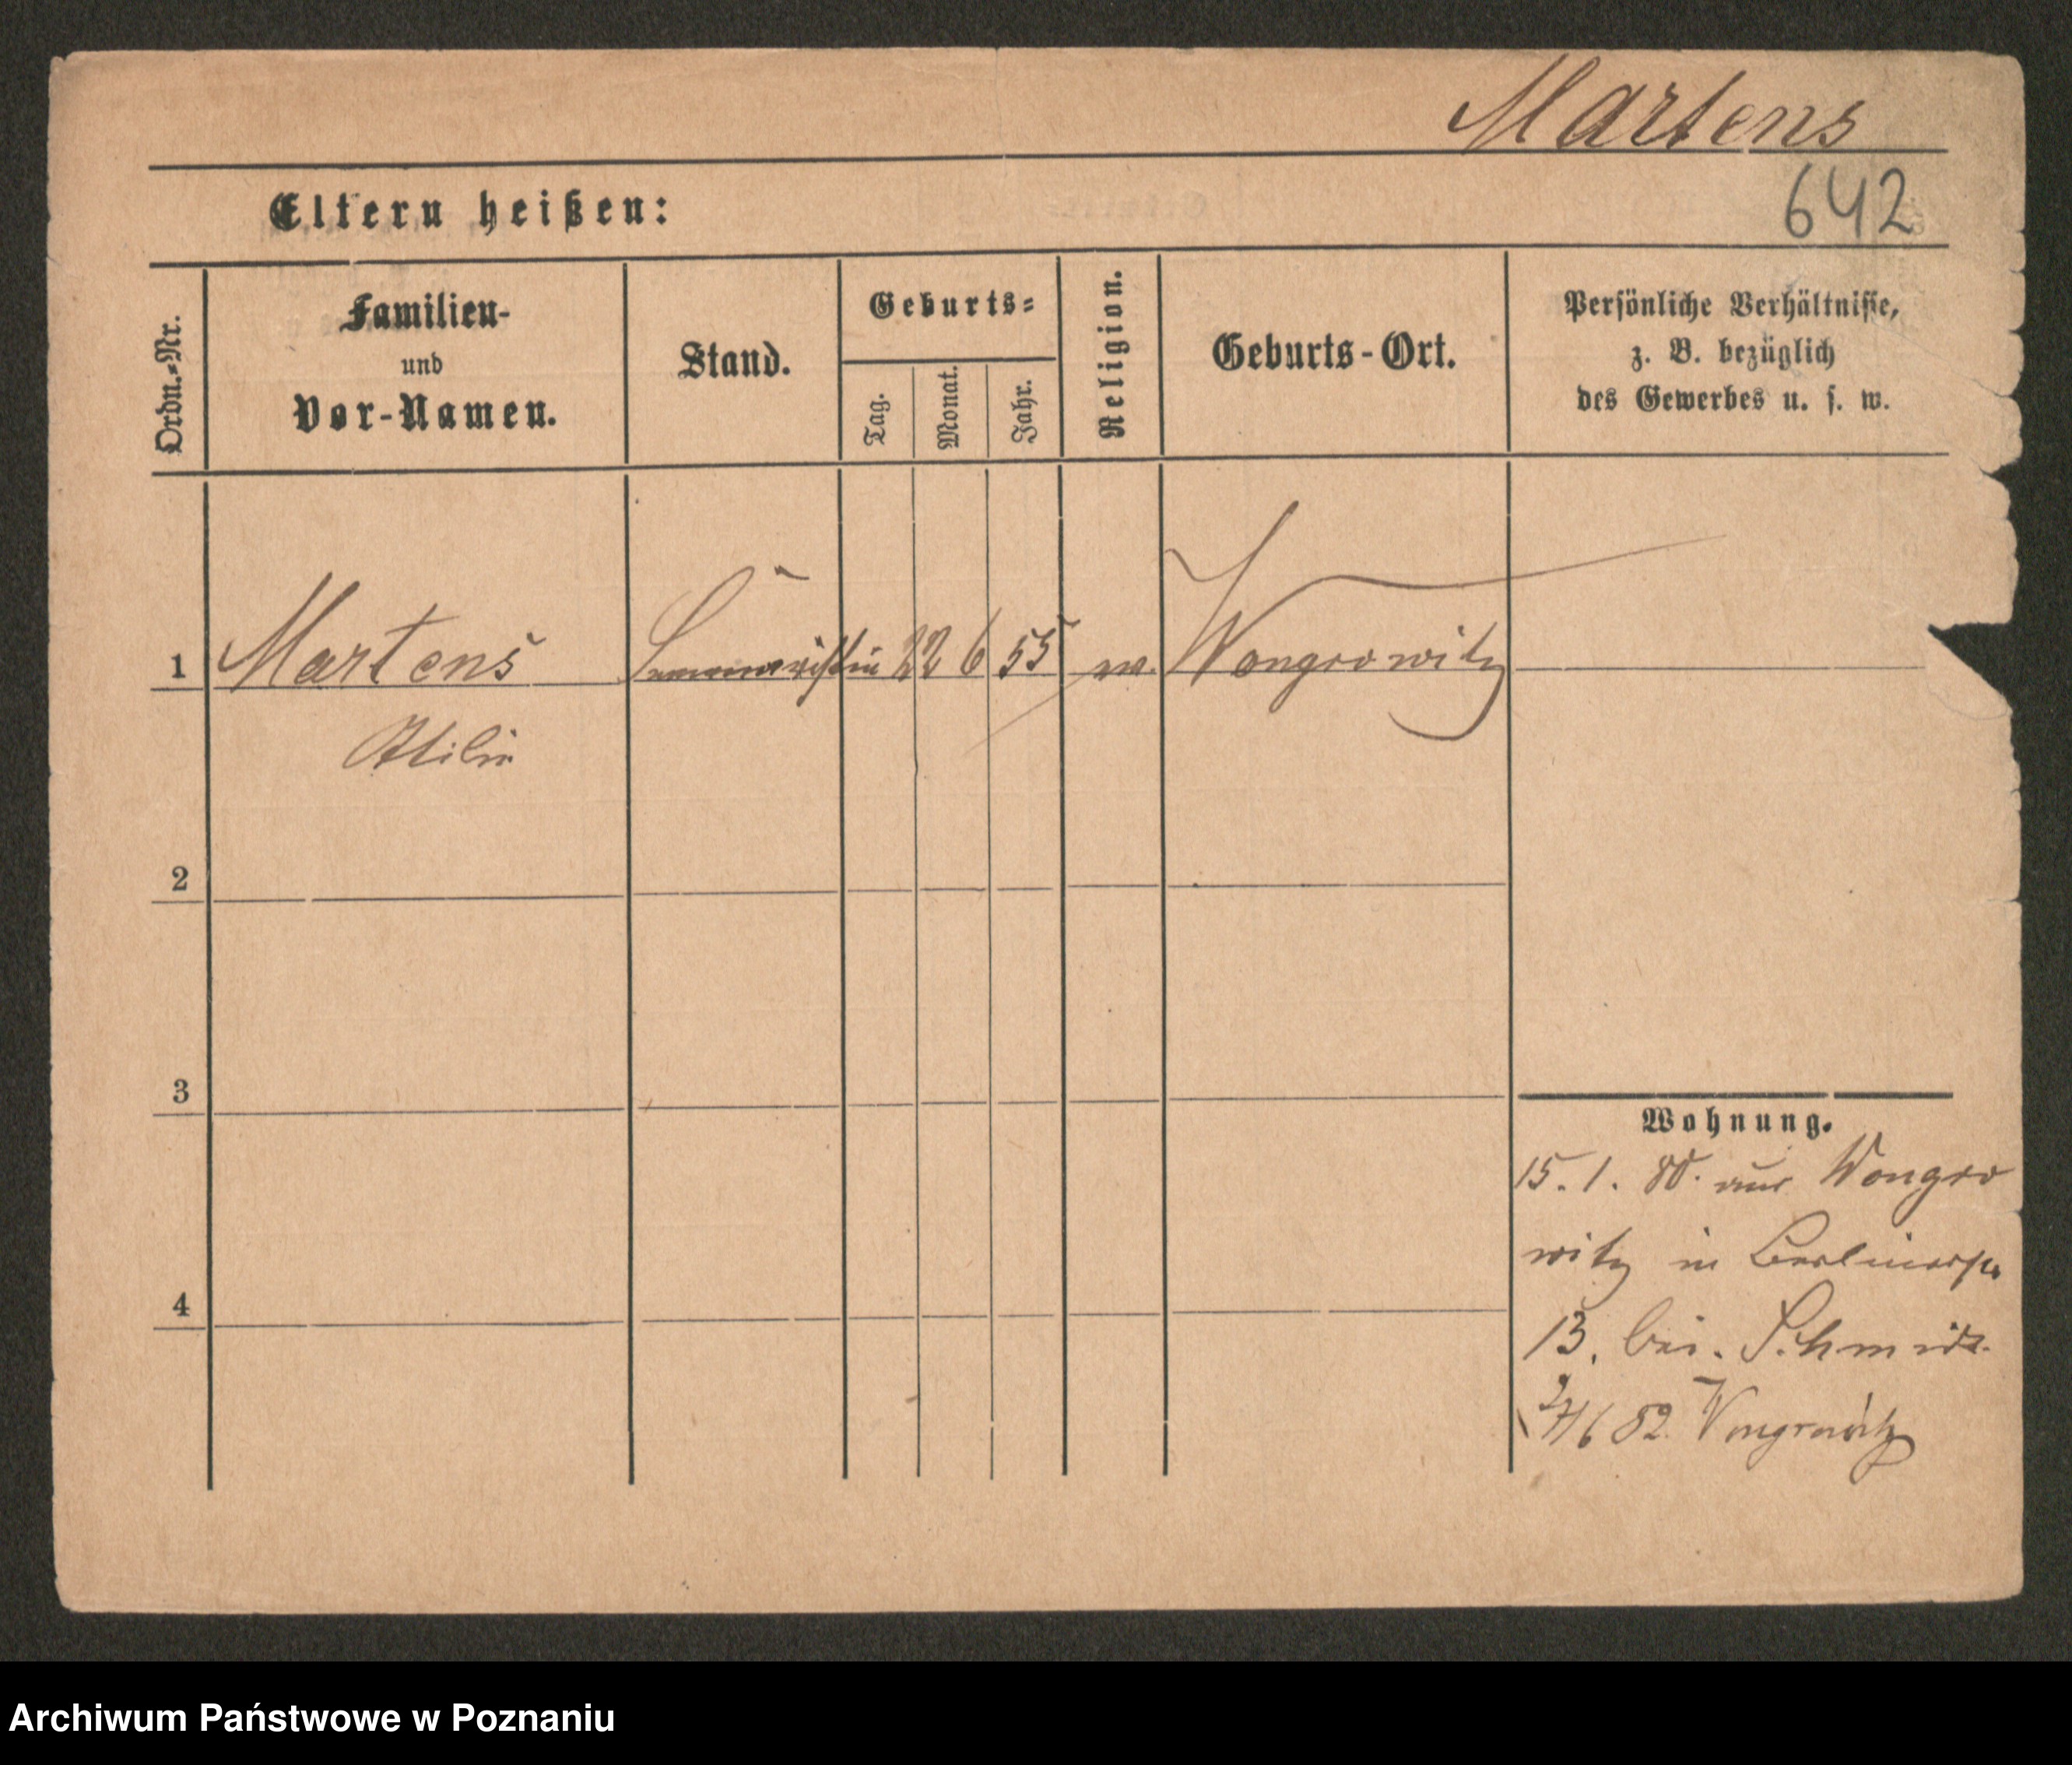 Martens
642
Eltern heißen:
Ordn.-Nr.
Familien-
und
Vor-Namen.
Stand.
Geburts-
Tag.
Monat.
Jahr.
Religion.
Geburts-Ort.
Persönliche Verhältnisse,
z. B. bezüglich
des Gewerbes u. s. w.
1 Martens 22 6 55 Wongrowitz
2
3
4
Wohnung.
15. 1. 80. aus Wongro
witz in Berlinerstr.
13. bei. Schmidt.
6 82. Wongrowitz
Archiwum Państwowe w Poznaniu